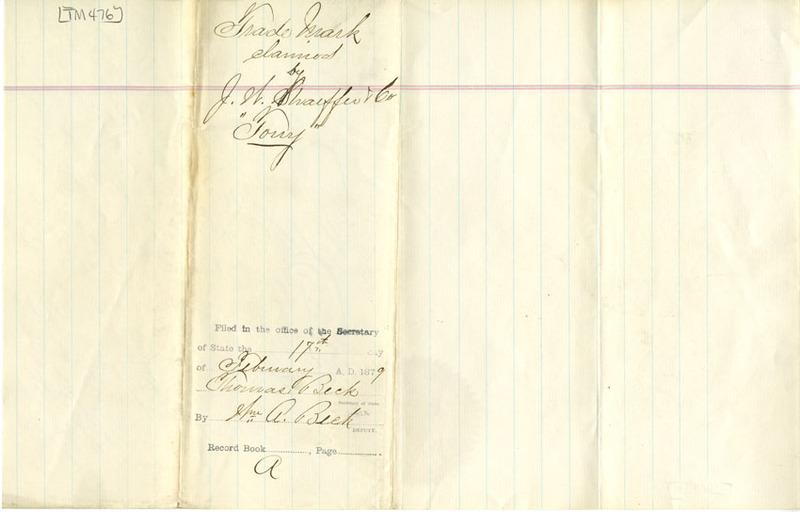 [TM476]
Trade Mark
claimed
by
J. W. Shaeffer & Co
"Tony"
Filed in the office of the Secretary
of State the 17th day
of February A. D. 1879
Thomas Beck
Secretary of State
By Wm A. Beck
DEPUTY.
Record Book ............, Page.............
A